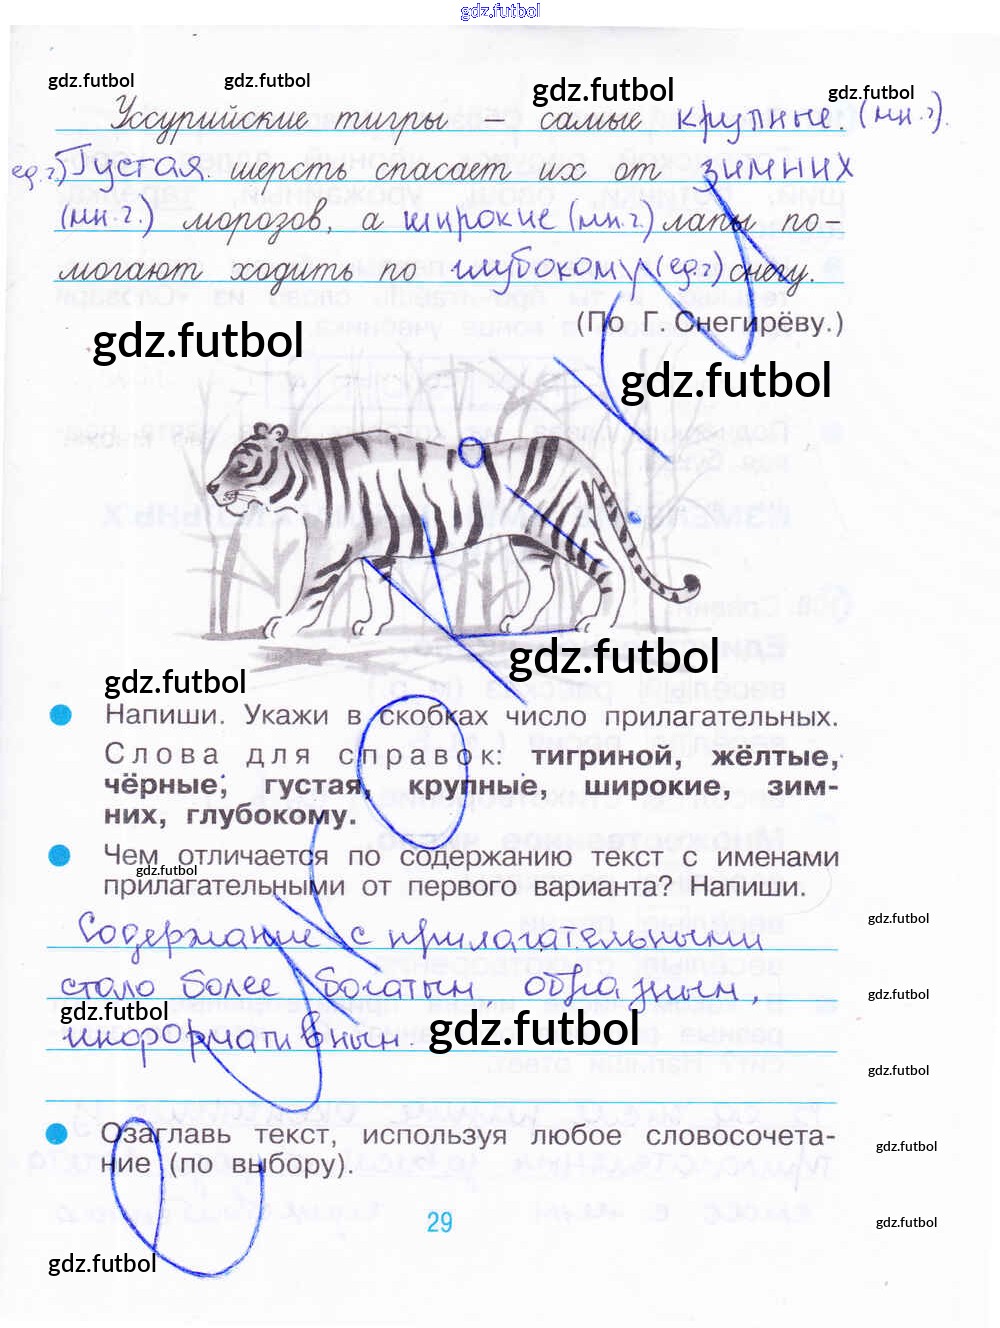 gdz.futbol
gdz.futbol gdz.futbol gdz.futbol gdz.futbol
Уссурийские тигры – самые крупные. (мн.ч).
ед.ч.) Густая. шерсть спасает их от зимних
(мн.ч.) морозов, а широкие (мн.ч.) лапы по-
могают ходить по глубокому (ед.ч) снегу.
(По Г. Снегирёву.)
gdz.futbol
gdz.futbol
gdz.futbol
gdz.futbol
Напиши. Укажи в скобках число прилагательных.
Слова для справок: тигриной, жёлтые,
чёрные, густая, крупные, широкие, зим-
них, глубокому.
Чем отличается по содержанию текст с именами
gdz.futbol
прилагательными от первого варианта? Напиши.
Содержание с прилагательными
gdz.futbol
стало более богатым, образным,
gdz.futbol
gdz.futbol
информативным.
gdz.futbol
gdz.futbol
Озаглавь текст, используя любое словосочета-
ние (по выбору).
gdz.futbol
29
gdz.futbol
gdz.futbol